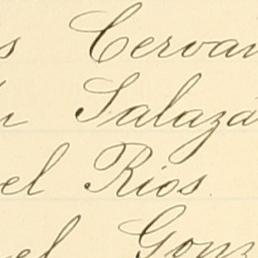 s Cervan
n Salaza
el Rios.
el Gonz